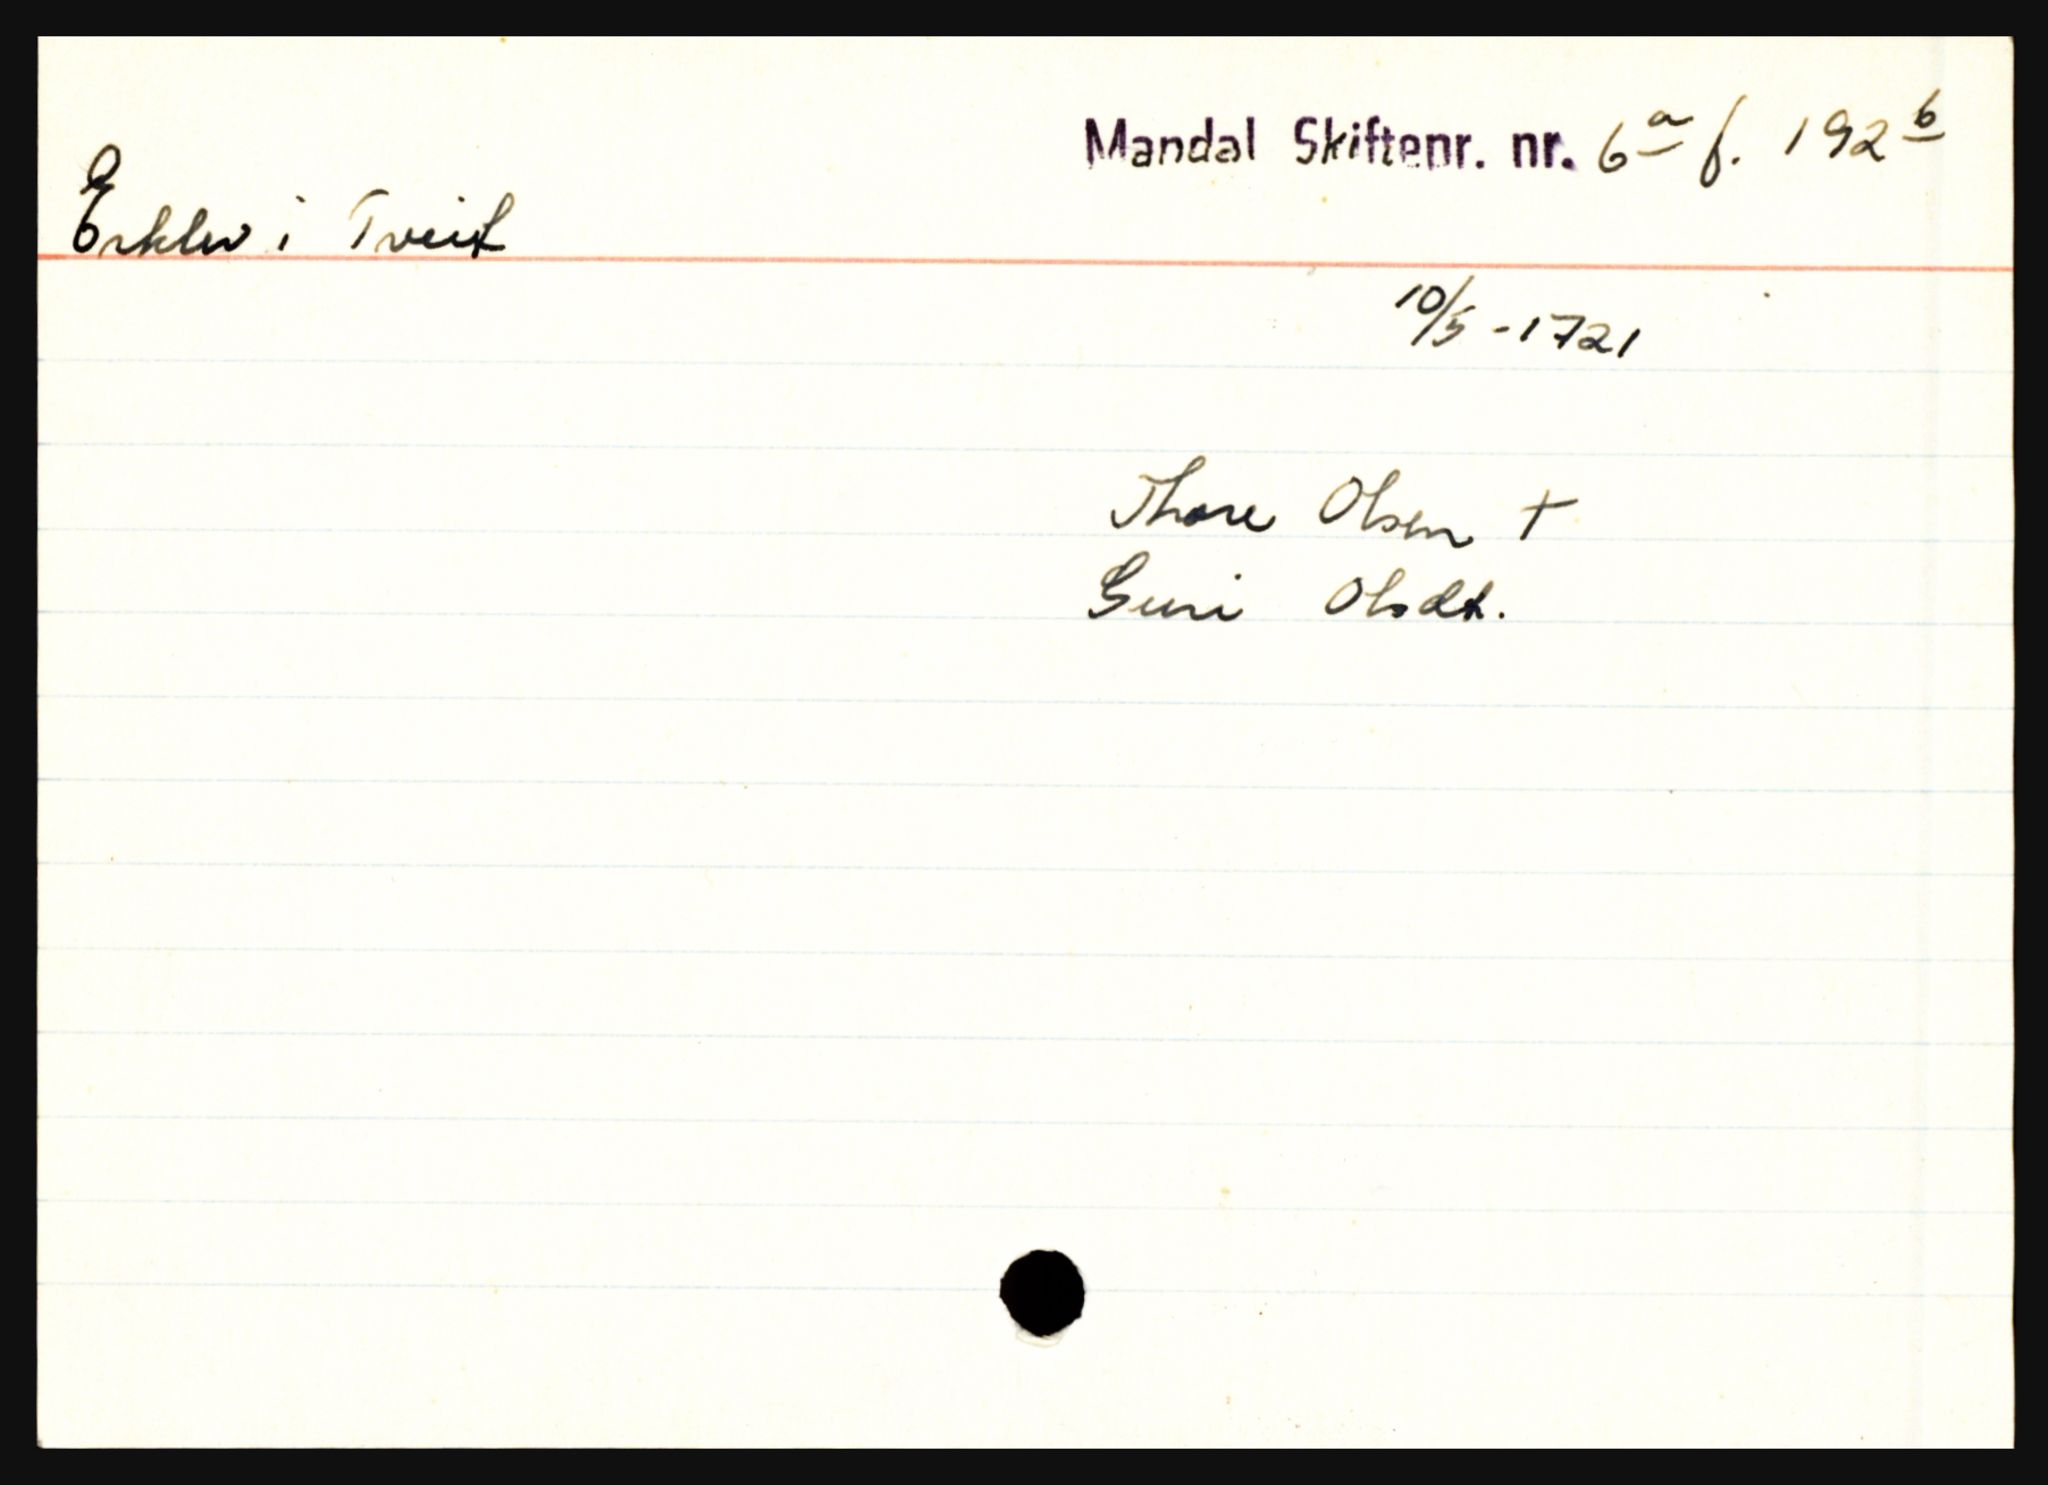 Mandal Skiftepr. nr. 6a f. 192b
Erklev i Tveit
10/5 - 1721
Thore Olsen +
Guri Olsdt.